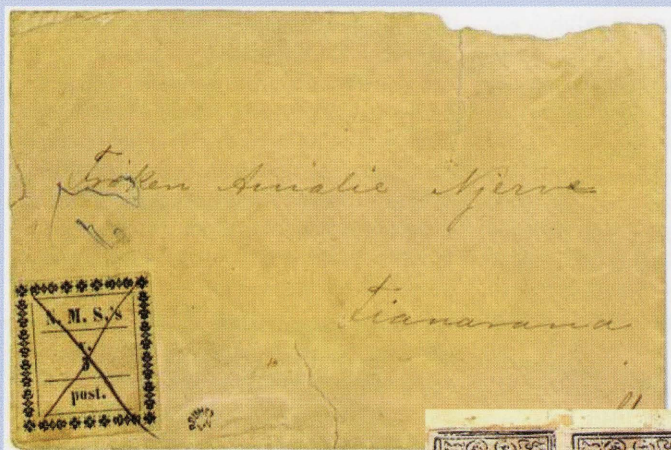 Frøken Amalie Njerve
Fianarana
N. M. S.'s
post.